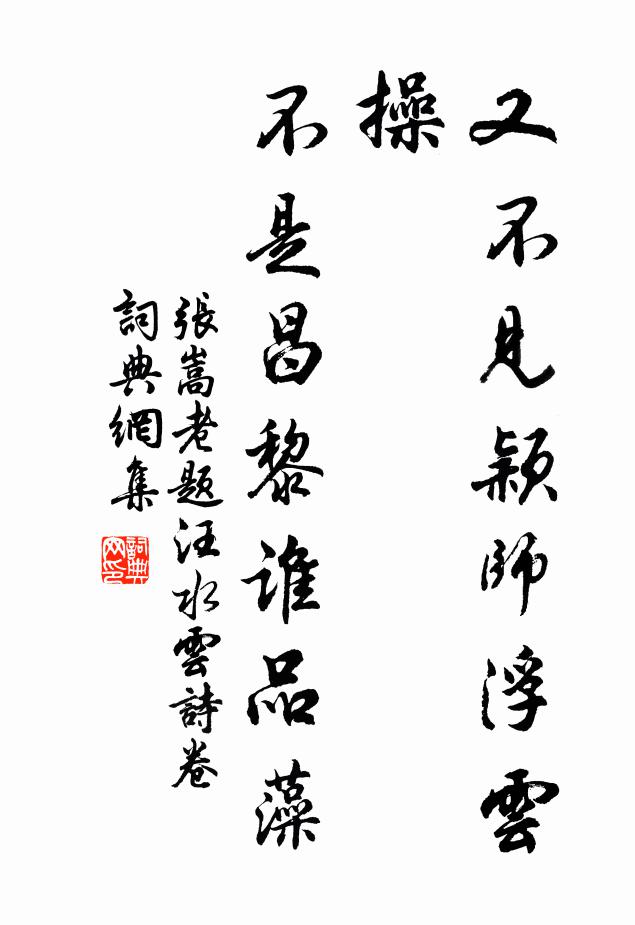 又不見颖師浮雲
操
不是昌黎谁品藻
張嵩老题汪水雲詩卷
詞典網集
詞典
网印